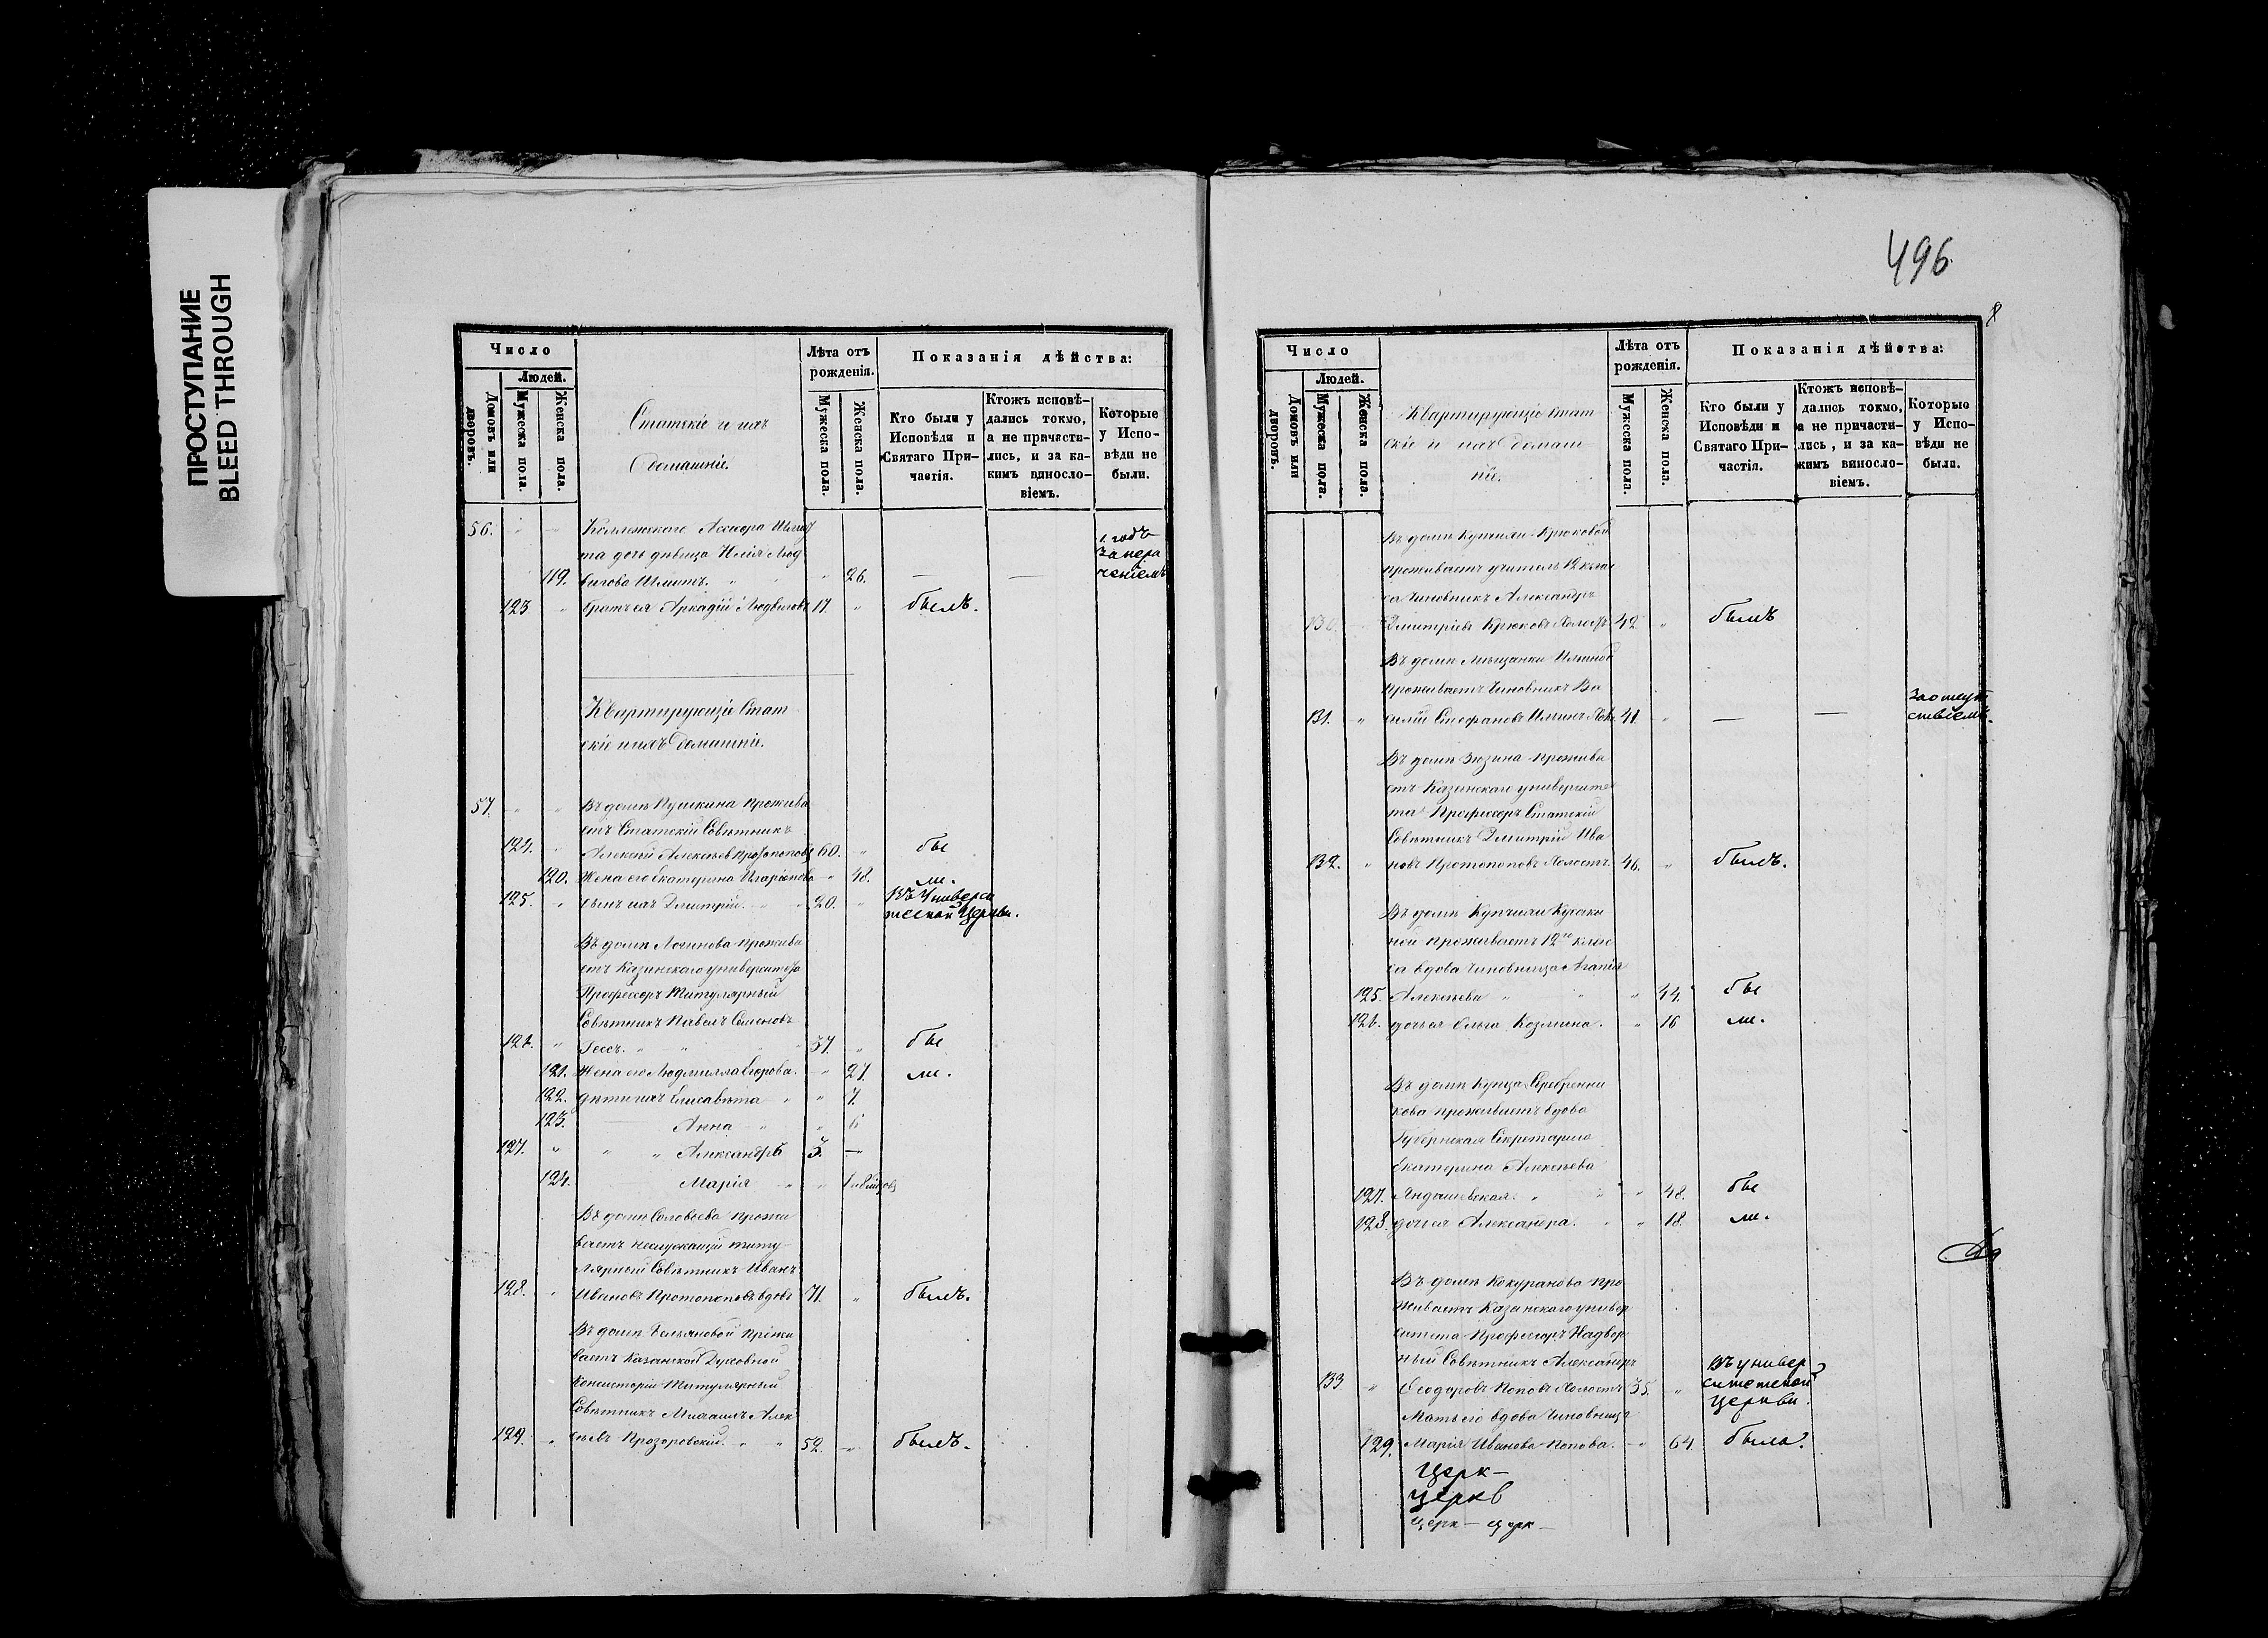 ПРОСТУПАНИЕ
BLEED THROUGH
496
Число
Людей.
Домовъ или дворовъ.
Мужеска пола.
Женска пола.
Статскіе и ихъ
домашніе.
Лѣта отъ рожденія.
Мужеска пола.
Женска пола.
Показанія дѣйства:
Кто были у Исповѣди и Святаго Причастія.
Ктожъ исповѣдались токмо, а не причастились, и за какимъ винословіемъ.
Которые у Исповѣди не были.
56. Коллежскаго Ассесора
та дочь дѣвица Юлія Люд
119. вигова Шмитъ. 26. — — 1 годъ за нера ченіемъ
123 братъ ея Аркадій Людвиговъ 17. былъ.
Квартирующіе Стат
скіе и ихъ домашніе.
57. Въ домѣ Пушкина прожива
етъ Статскій Совѣтникъ
124. Алексѣй Алексѣевъ Протопоповъ 60. бы
120. Жена его Екатерина 48. ли.
125. сынъ ихъ Дмитрій. 20. Въ Универси тетской Церкви.
Въ домѣ Логинова прожива
етъ Казанскаго университета
Профессоръ Титулярный
Совѣтникъ Павелъ Семеновъ
126. Гессъ. 37. бы
121. Жена его Людмилла Егорова. 27. ли.
122. дѣти ихъ Елисавета 7.
123. Анна 6
127. Александръ 3.
124. Марія
Въ домѣ Соловьева прожи
ваетъ неслужащій титу
лярный Совѣтникъ Иванъ
128. Ивановъ Протопоповъ вдовъ 71. былъ.
Въ домѣ прожи
ваетъ Казанской Духовной
Консисторіи Титулярный
Совѣтникъ Михаилъ Алек
129. сѣевъ Прозоровскій. 52. былъ.
Число
Людей.
Домовъ или дворовъ.
Мужеска пола.
Женска пола.
Квартирующіе стат
скіе и ихъ домаш
ніе.
Лѣта отъ рожденія.
Мужеска пола.
Женска пола.
Показанія дѣйства:
Кто были у Исповѣди и Святаго Причастія.
Ктожъ исповѣдались токмо, а не причастились, и за какимъ винословіемъ.
Которые у Исповѣди не были.
Въ домѣ Купчихи Крюковой
проживаетъ учитель 12 клас
са Чиновникъ Александръ
130. Дмитріевъ Крюковъ Холостъ 42. былъ
Въ домѣ Мѣщанки Ильиной
проживаетъ Чиновникъ Ва
131. силій Стефановъ Ильинъ 41. — — За отсут ствіемъ.
Въ домѣ Зюзина прожива
етъ Казанскаго университе
та Профессоръ Статскій
Совѣтникъ Дмитрій Ива
132. новъ Протопоповъ Холостъ. 46. былъ.
Въ домѣ Купчихи
ной проживаетъ 12го клас
са вдова Чиновница Агапія
125. Алексѣева 44. бы
126. дочь ея Ольга Козмина. 16 ли.
Въ домѣ Купца Серебренни
кова проживаетъ вдова
Губернская Секретарша
Екатерина Алексѣева
127. Яндашевская. 48. бы
128. дочь ея Александра. 18. ли.
Въ домѣ Кокуранова про
живаетъ Казанскаго универ
ситета Профессоръ Надвор
ный Совѣтникъ Александръ
133 Ѳеодоровъ Поповъ Холостъ 35. Въ универ ситетской церкви.
Мать его вдова Чиновница
129. Марія Иванова Попова. 64 была.
Церк—
Церкв
Церк— церк—